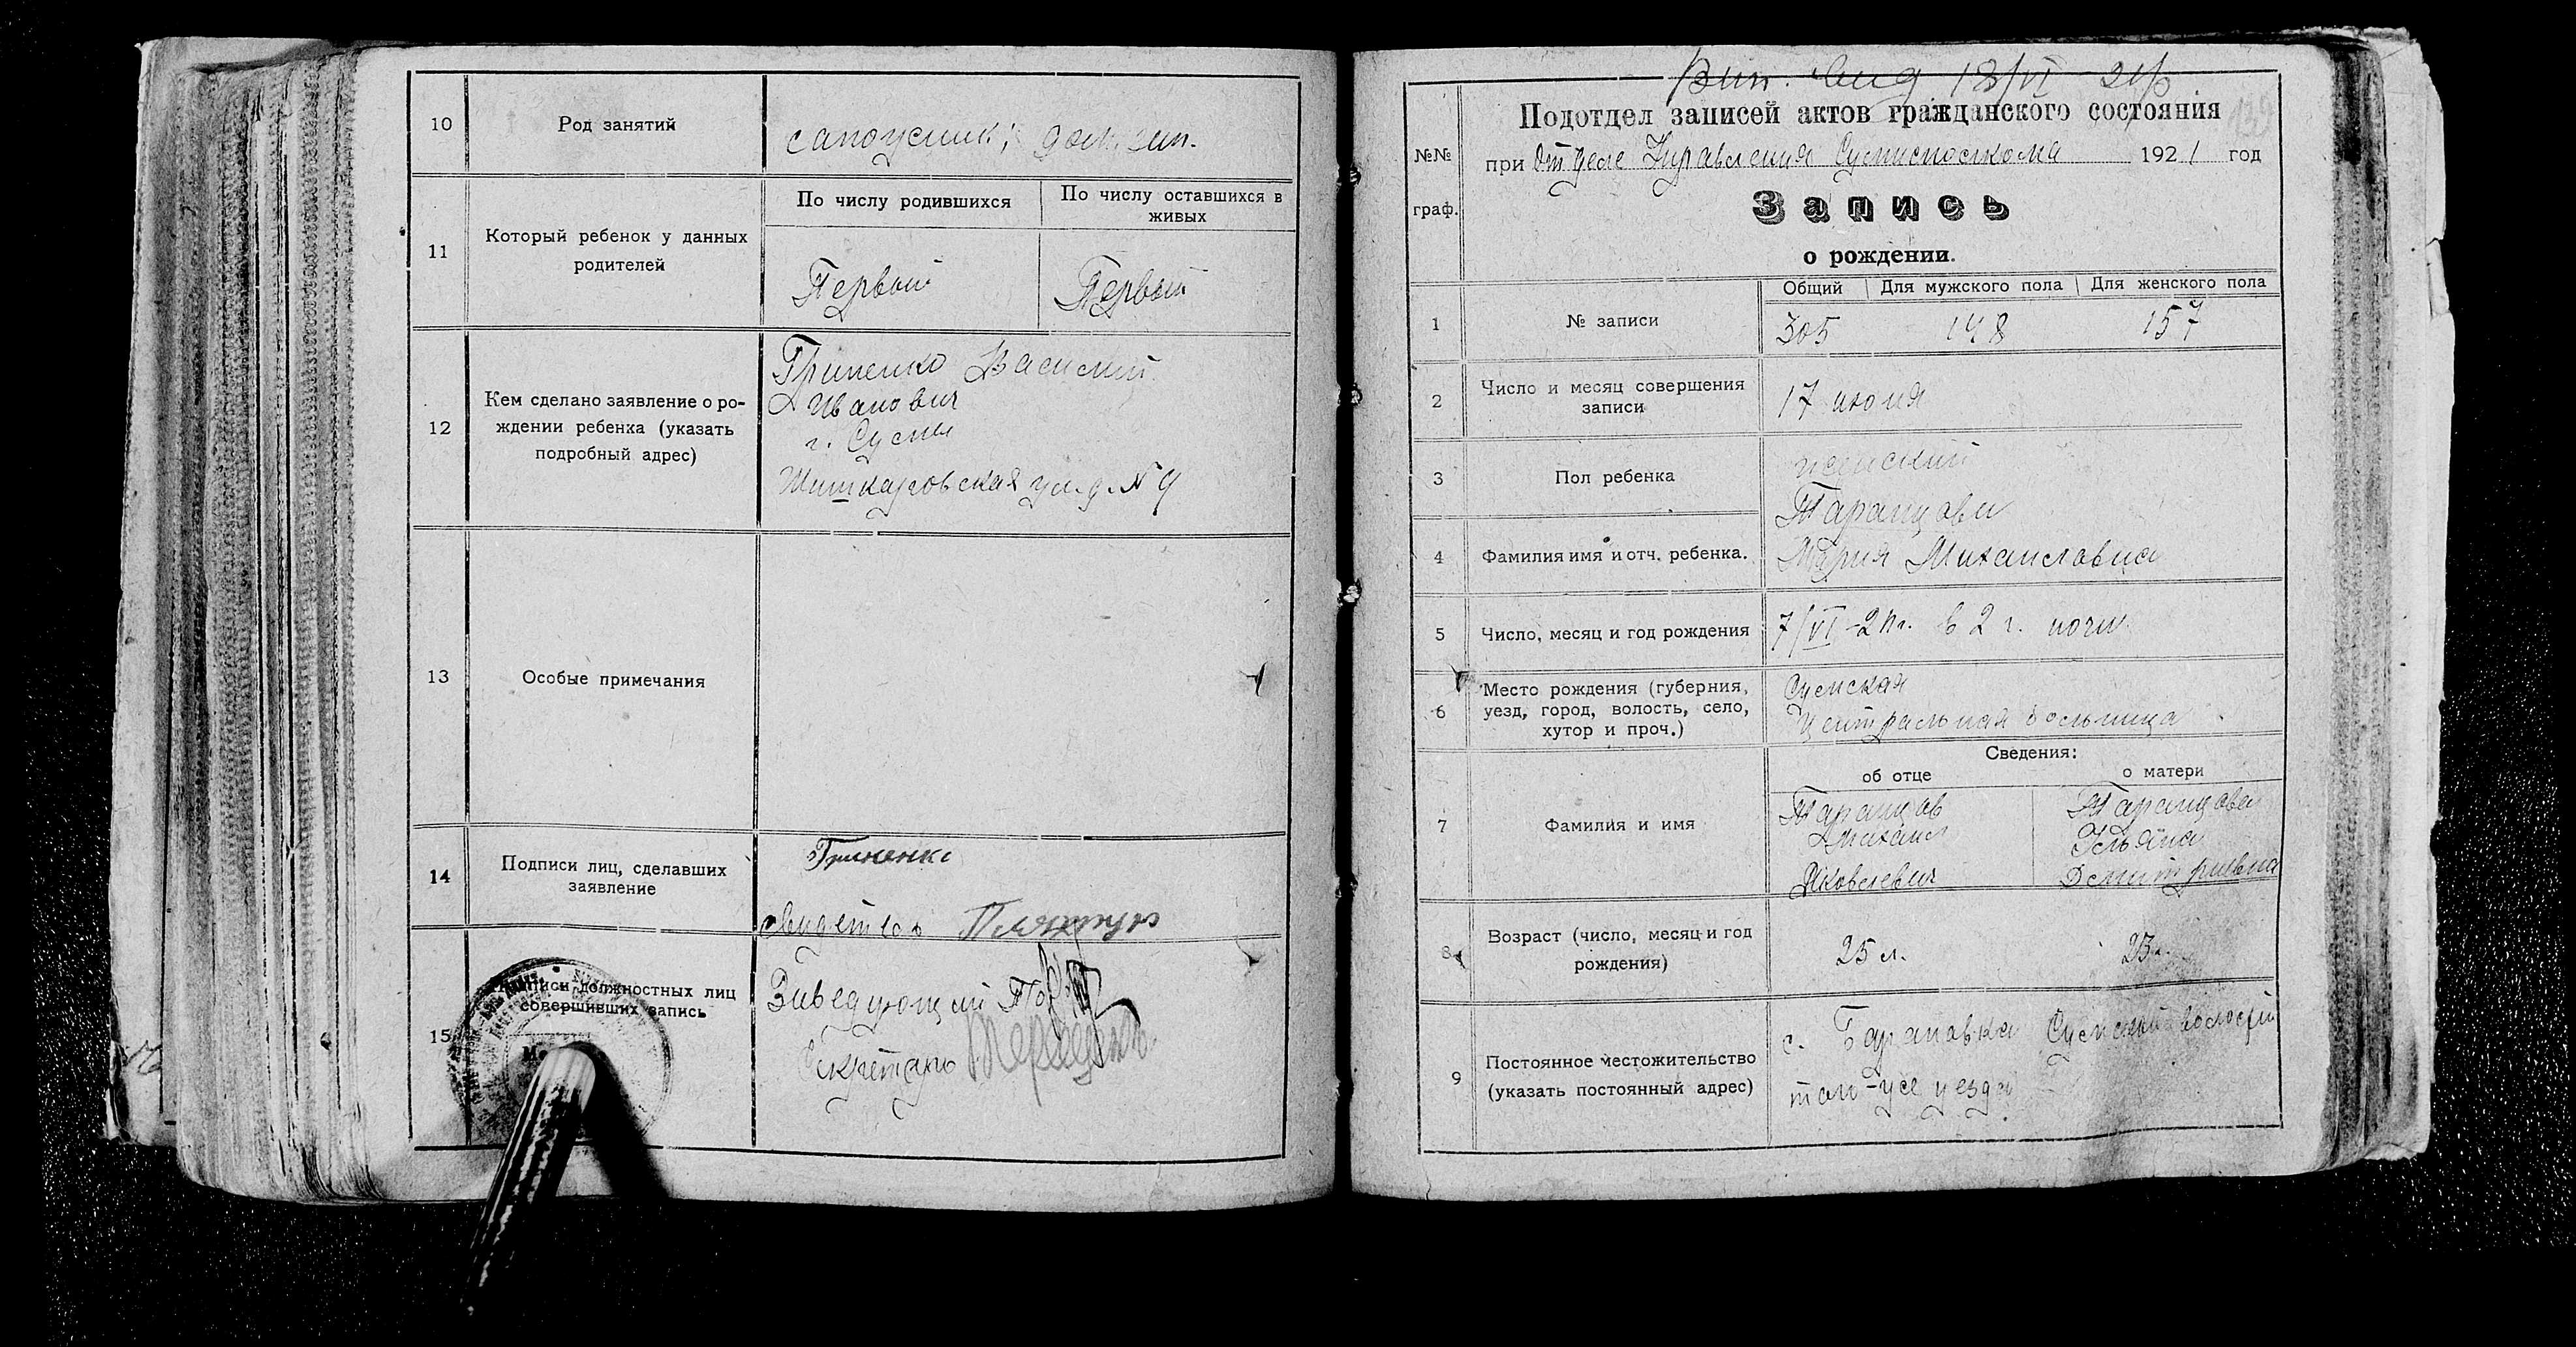 10
Род занятий
сапожник; дом. зан.
11
Который ребенок у данных
родителей
По числу родившихся
По числу оставшихся в
живых
Первый
Первый
12
Кем сделано заявление о ро-
ждении ребенка (указать
подробный адрес)
Гриненко Василий
Иванович
г. Сумы
ул. д. № 9
13
Особые примечания
14
Подписи лиц, сделавших
заявление
Гриненко
свидетель
15
Подписи должностных лиц
совершивших запись
Заведующий
Секретарь
18/VI 21 р
Подотдел записей актов гражданского состояния
№№
граф.
при Отделе Управления 1921 год
Запись
о рождении.
1
№ записи
Общий
Для мужского пола
Для женского пола
305
148
157
2
Число и месяц совершения
записи
17 июня
3
Пол ребенка
женский
4
Фамилия имя и отч. ребенка.
Таранцова
Мария Михайловна
5
Число, месяц и год рождения
7/VI-21 г. в 2 г. ночи
6
Место рождения (губерния,
уезд, город, волость, село,
хутор и проч.)
Сумская
Центральная больница
7
Фамилия и имя
Сведения:
об отце
о матери
Таранцов
Михаил
Яковлевич
Таранцова
Ульяна
Дмитриевна
8
Возраст (число, месяц и год
рождения)
25 л.
23 л.
9
Постоянное местожительство
(указать постоянный адрес)
с. Барановка Сумской волости
уезда